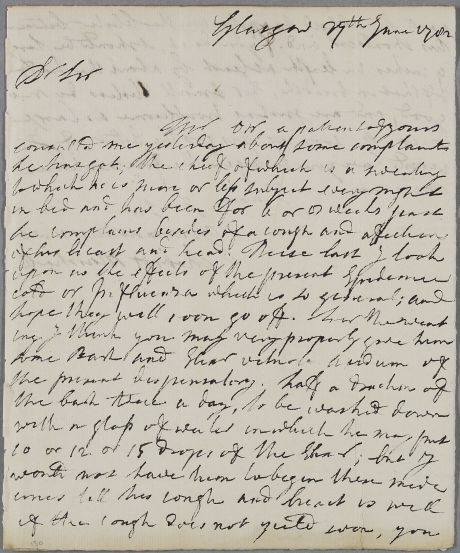 Glasgow 29th June 1782
Dr Sir
Mr Orr, a patient of yours
consulted me yesterday about some complaints
he has got; the chief of which is a sweating
to which he is more or less subject every night
in bed and has been for 6 or 8 weeks past
he complains besides of a cough and affection
of his breast and head. These last I look
upon as the effects of the present Epidemic
cold or Influenza which is so general; and
hope they will soon go off. For the sweat
ing, I think you may very properly give him
some Bark and Elixir vitriol: acidum of
the present dispensatory. half a drachm of
the bark twice a day, to be washed down
with a glass of water in which he may put
10 or 12 or 15 drops of the Elixir; but I
would not have him to begin these medi
cines till his cough and breast is well
if the cough does not yield soon, you